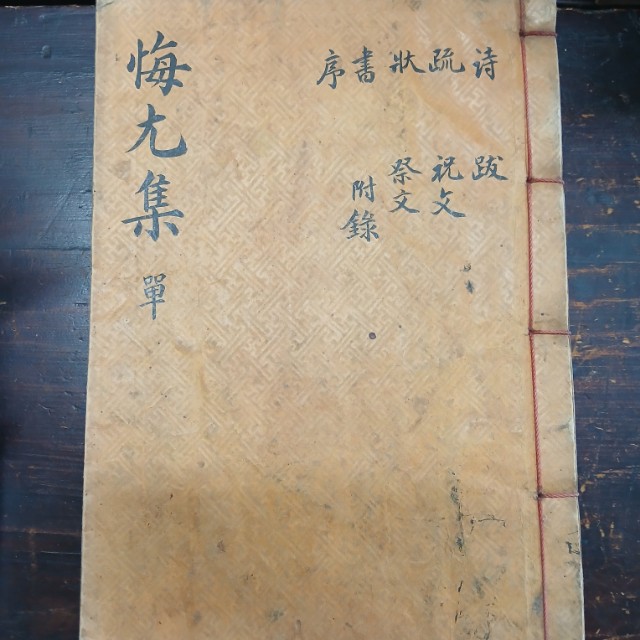 诗 跋
疏 祝文
狀 祭文
書 附錄
序
悔尤集 單